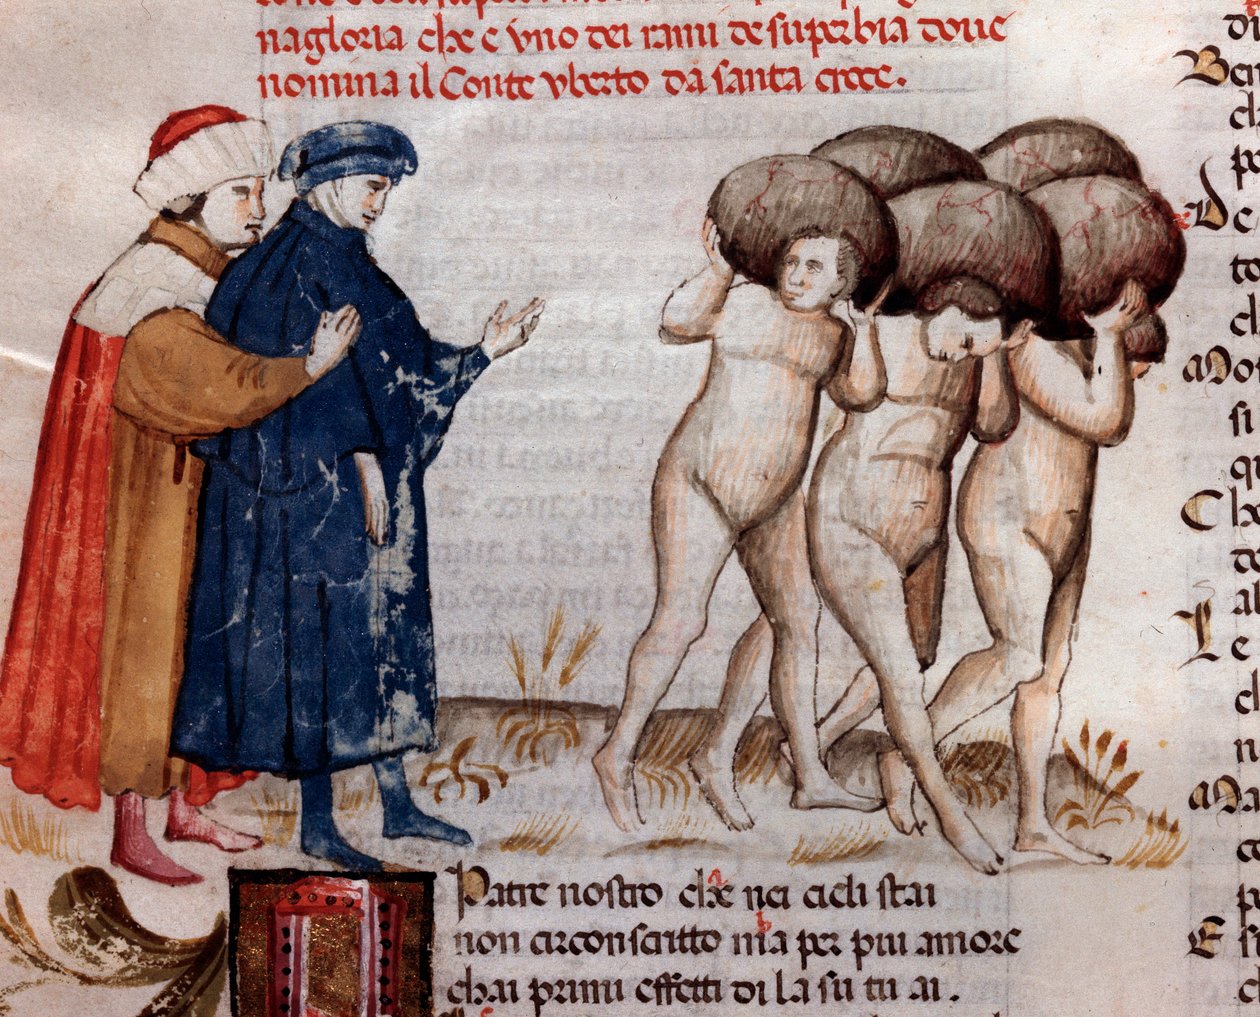 nagloria che e vno dei rami de superbia doue
nomina il Conte vberto da santa croce.
Patre nostro che nei cieli stai
non circonscritto ma per piu amore
chai primi effetti di la su tu ai.
di
Ben
pe
De
to
Mos
si
qu
Che
al
Le
Ma